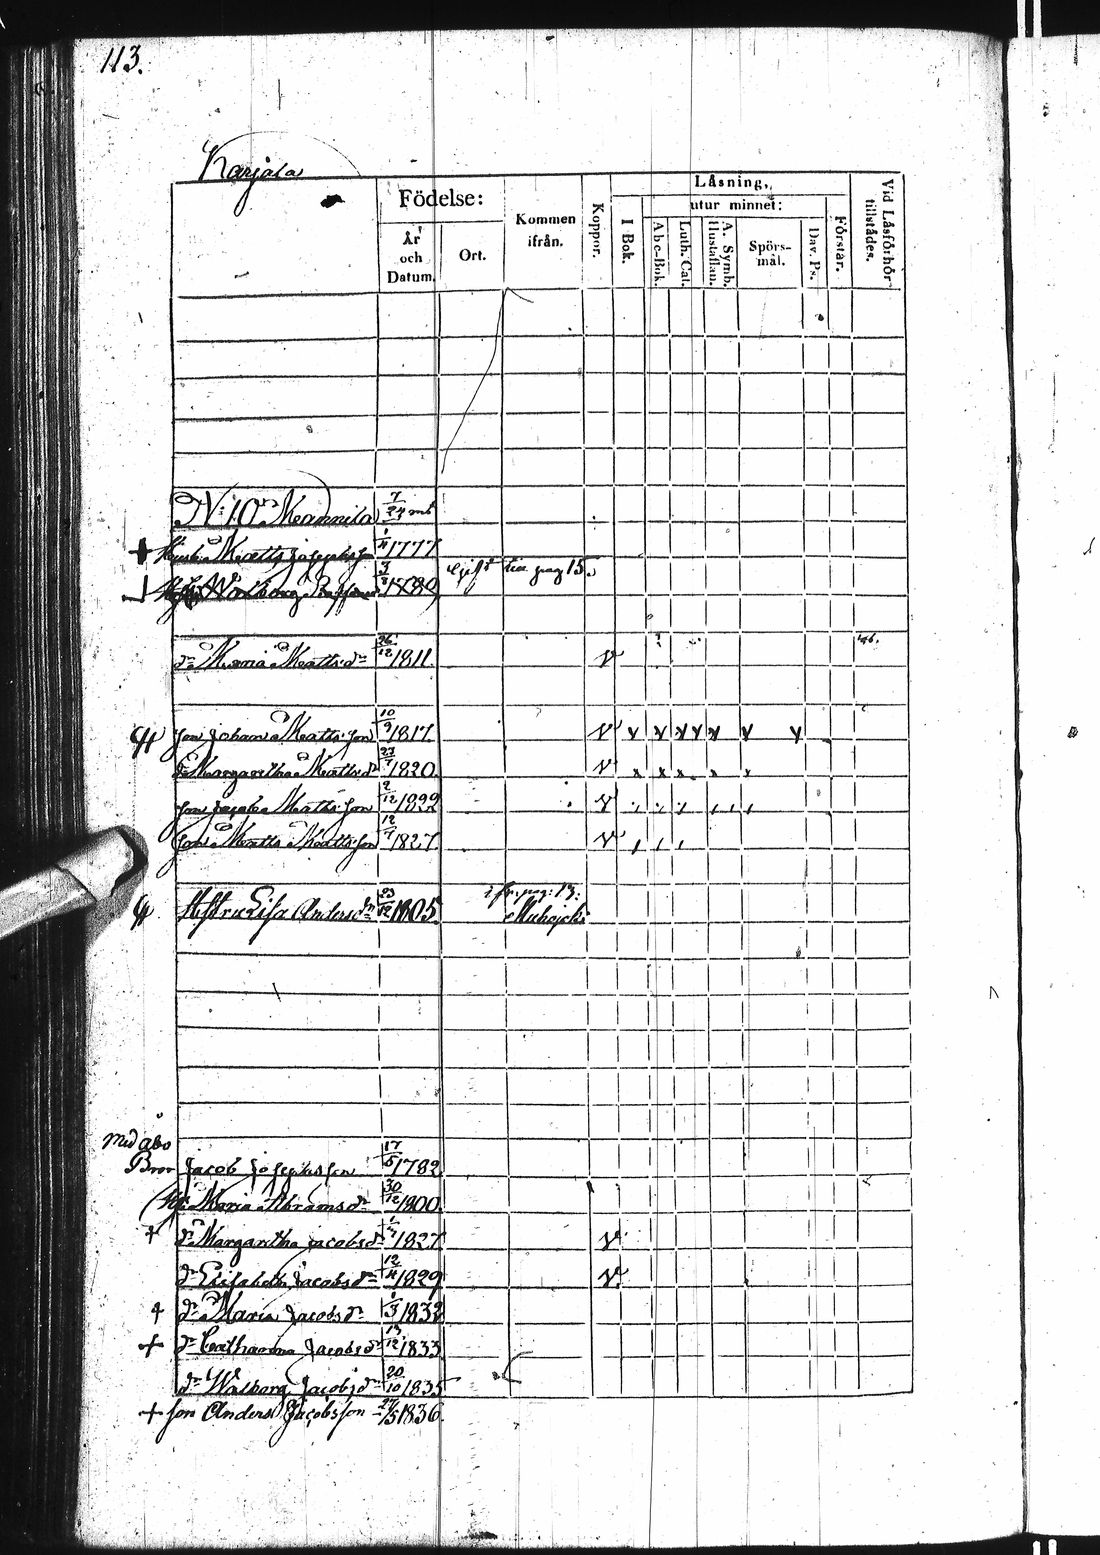 113.
Karjala
Födelse:
År och Datum.
Ort.
Kommen ifrån.
Koppor.
Läsning,
utur minnet:
I Bok.
Abc-Bok.
Luth. Cat.
A. Symb. Hustaflan.
Spörs-mål.
Dav. Ps.
Förstår.
Vid Läsförhör tillstädes.
N:10 Mannila 7/24 mtl
Matts Josephsson 1777
Walborg 1789 Gift till pag 15.
dr Maria Mattsdr 26/12 1811. V
Son Johan Mattsson 10/9 1817. V
dr Margaretha Mattsdr 1820. V
Son Jacob Mattsson 2/12 1822 V
Son Matts Mattsson 12/7 1827. V
Hustru Lisa Andersdr 23/12 1805. fr. pag: 13.
Med Åbo
Bror Jacob Josephsson 17/5 1782
Hu Maria Abramsdr 30/12 1800.
dr Margaretha Jacobsdr 1827 V
dr Elisabeth Jacobsdr 1829 V
dr Maria Jacobsdr 1/3 1832
dr Catharina Jacobsdr 13/12 1833
dr Walborg Jacobsdr 20/10 1835
Son Anders Jacobsson 27/5 1836.